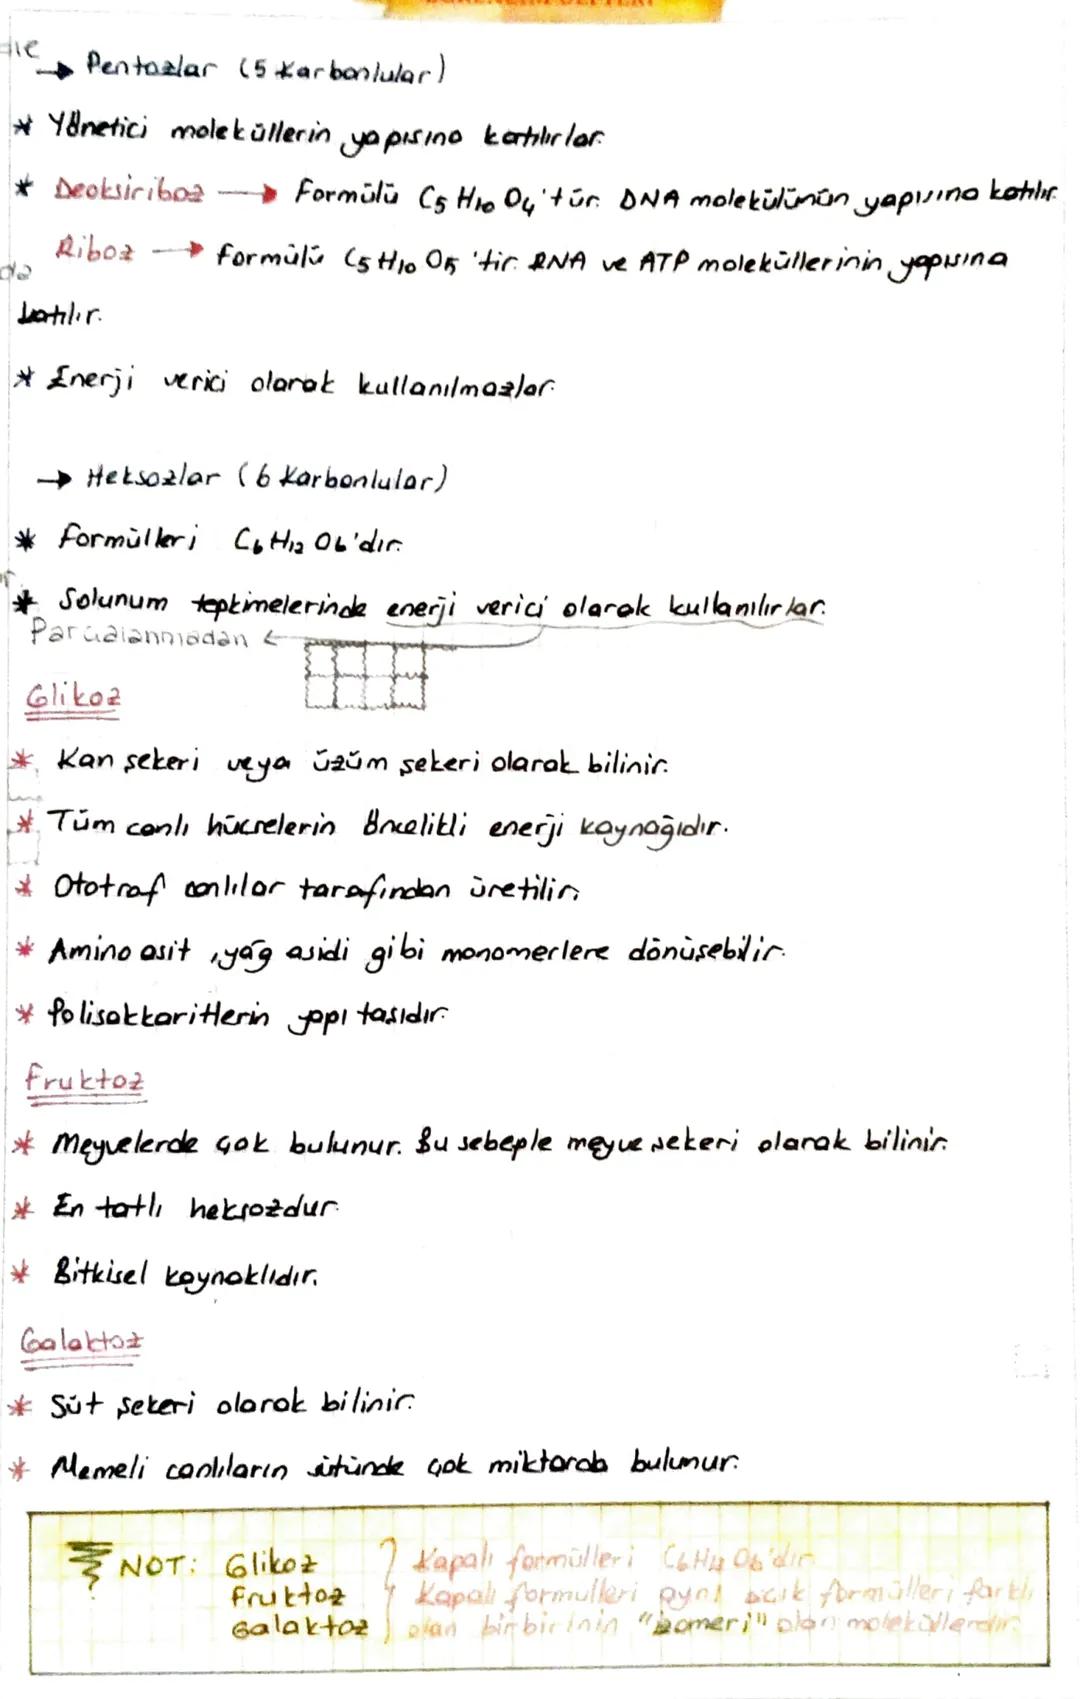 → Pentozlar (5 Karbonlular)
* Yönetici moleküllerin yapısına katılırlar.
* Deoksiriboz → Formülü C5 H10 O4'tür. DNA molekülünün yapısına katılır.
Riboz → Formülü C5 H10 O5 'tir. RNA ve ATP moleküllerinin yapısına
katılır.
* Enerji verici olarak kullanılmazlar.
→ Heksozlar (6 Karbonlular)
* Formülleri C6 H12 O6'dır.
* Solunum tepkimelerinde enerji verici olarak kullanılırlar.
Parçalanmadan ←
Glikoz
* Kan şekeri veya üzüm şekeri olarak bilinir.
* Tüm canlı hücrelerin öncelikli enerji kaynağıdır.
* Ototrof canlılar tarafından üretilir.
* Amino asit, yağ asidi gibi monomerlere dönüşebilir.
* Polisakkaritlerin yapı taşıdır.
Fruktoz
* Meyvelerde çok bulunur. Bu sebeple meyve şekeri olarak bilinir.
* En tatlı heksozdur.
* Bitkisel kaynaklıdır.
Galaktoz
* Süt şekeri olarak bilinir.
* Memeli canlıların sütünde çok miktarda bulunur.
NOT: Glikoz } Kapalı formülleri O6'dır
Fruktoz Kapalı formülleri aynı açık formülleri farklı
Galaktoz olan birbirinin "izomeri" olan moleküllerdir.